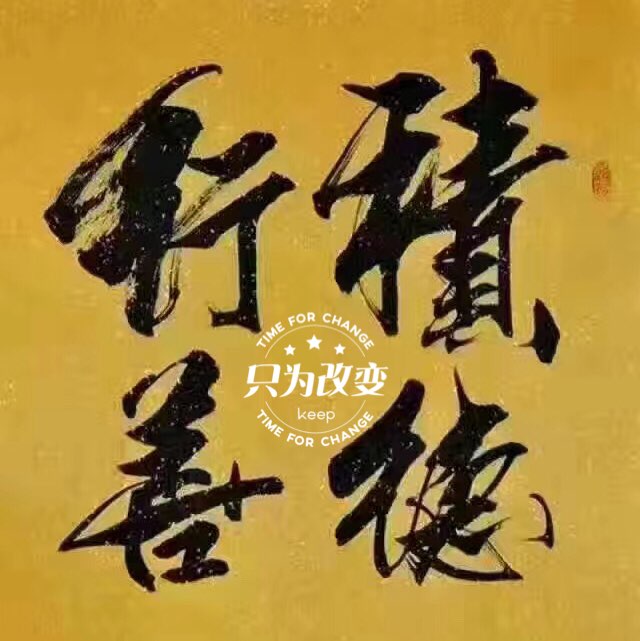 積德
行善
TIME FOR CHANGE
只为改变
keep
TIME FOR CHANGE